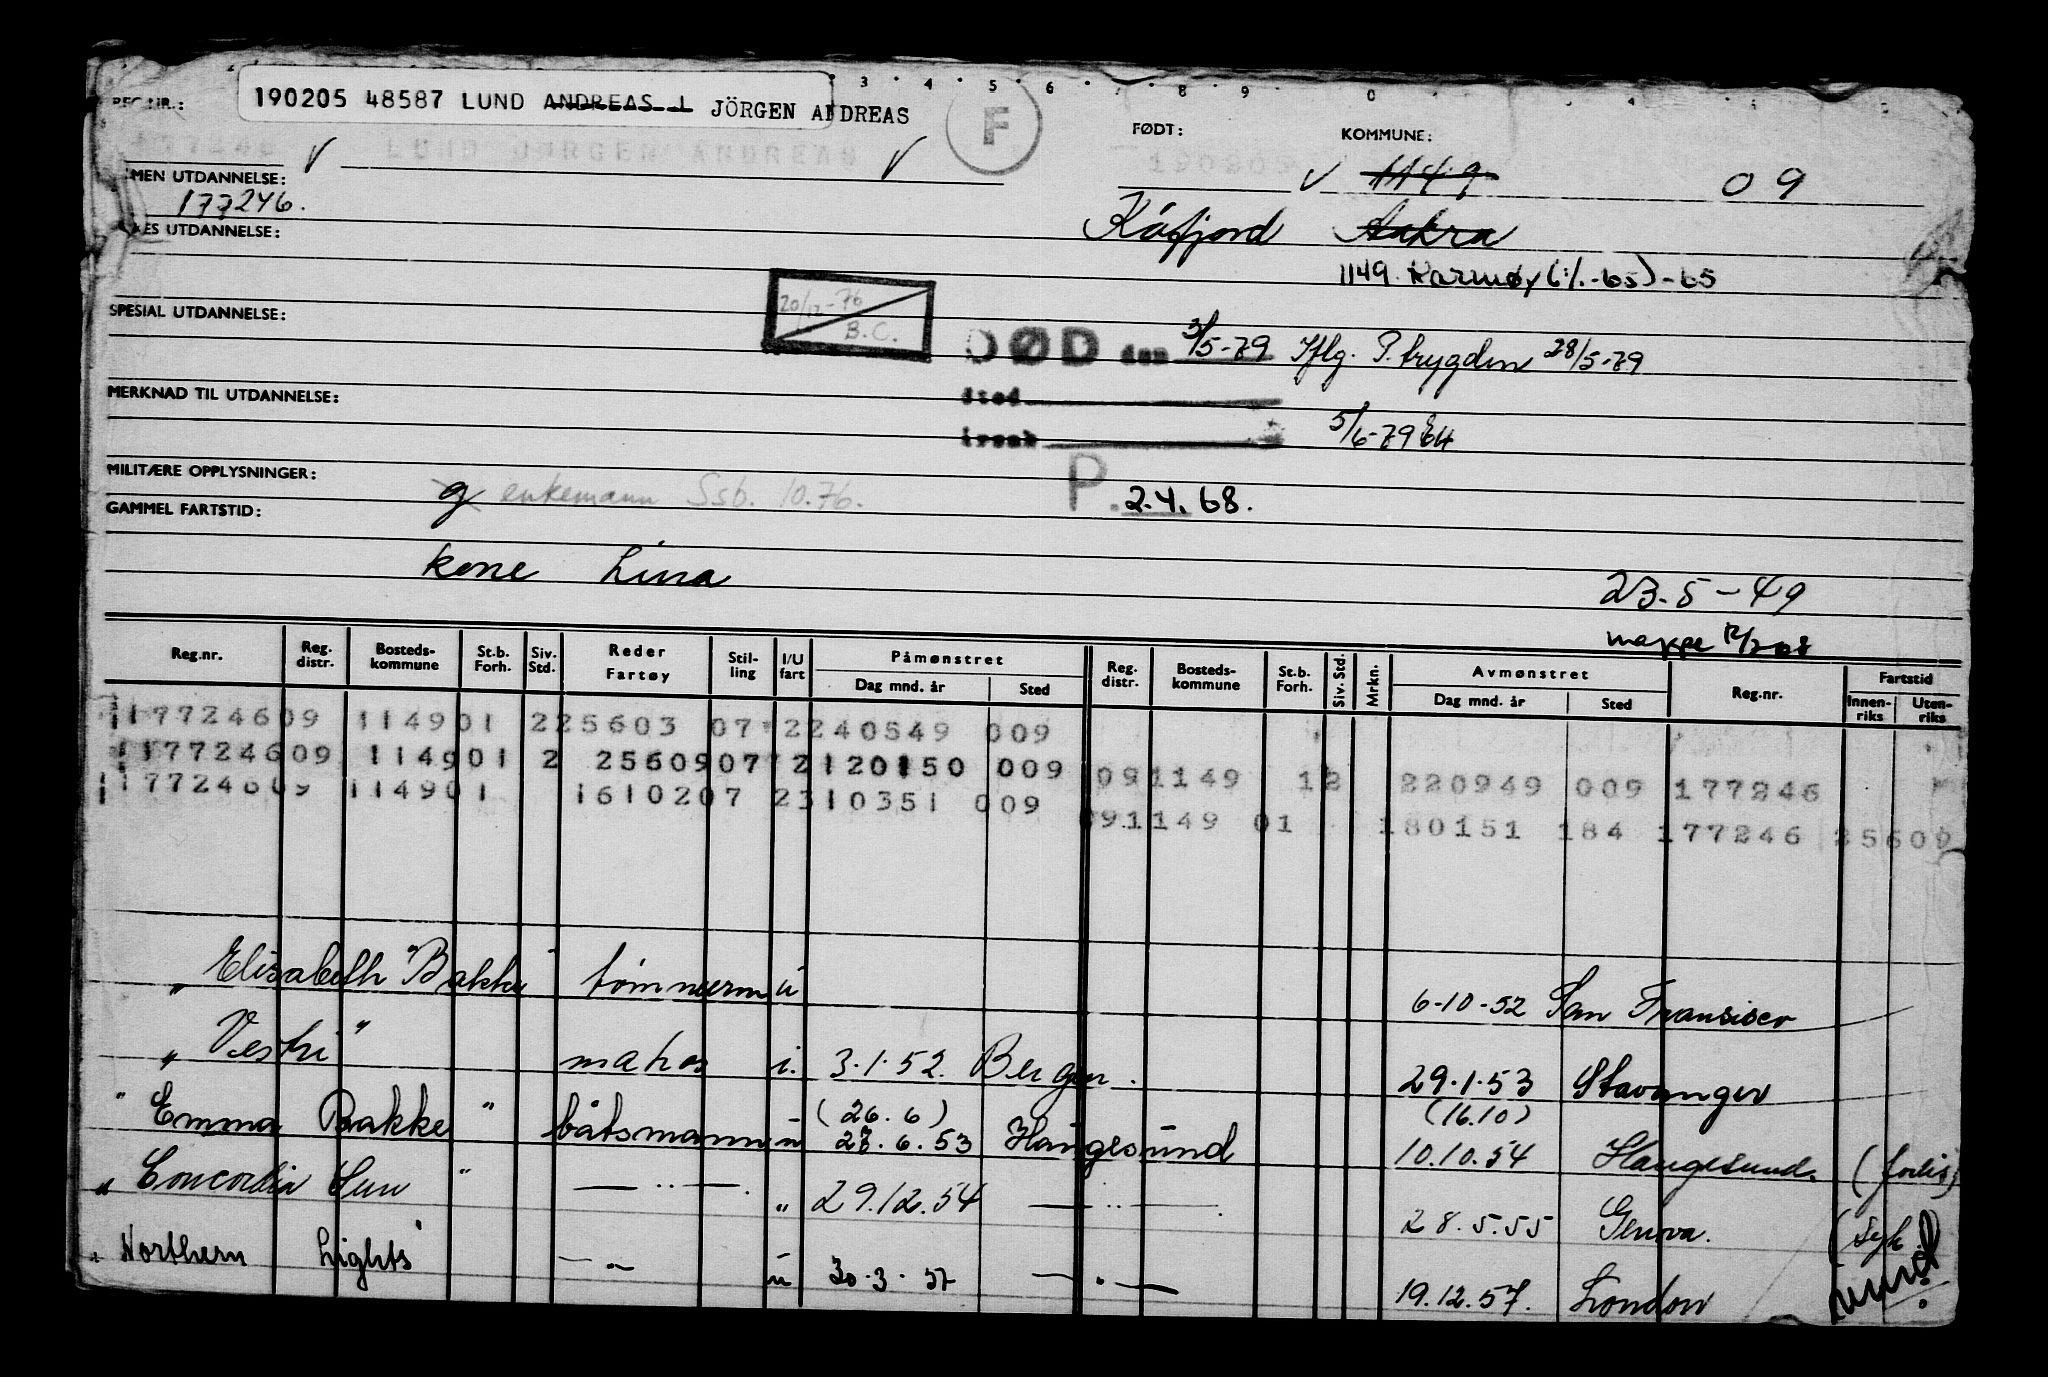 3 4 5 6 8 9 0
REG.NR.: 190205 48587 LUND ANDREAS L JÖRGEN ANDREAS F
FØDT: KOMMUNE:
177246 LUND JØRGEN ANDREAS 190205 1149 09
ALMEN UTDANNELSE:
177246.
Kåfjord Aakra
UTDANNELSE:
1149 Karmøy (1/1-65)-65
20/12-76 B.C.
SPESIAL UTDANNELSE:
DØD den 3/5-79 Iflg. P.trygden 28/5-79
MERKNAD TIL UTDANNELSE:
Sted
5/6-79
MILITÆRE OPPLYSNINGER:
g enkemann Ssb. 10.76.
P. 2.4.68.
GAMMEL FARTSTID:
kone Lina
23.5-49
mappe
Reg.nr. Reg. distr. Bosteds-kommune St.b. Forh. Siv. Std. Reder Fartøy Stil-ling I/U fart Påmønstret Dag mnd. år Sted Reg. distr. Bosteds-kommune St.b. Forh. Siv. Std. Mrkn. Avmønstret Dag mnd. år Sted Reg.nr. Fartstid Innen-riks Uten-riks
117724609 114901 225603 07 2240549 009
117724609 114901 2 2560907 2120150 009 091149 12 220949 009 177246
117724609 114901 1610207 2310351 009
091149 01 180151 184 177246 25609
" Elisabeth "Bakke" tømmerm u 6-10-52 San Fransisco
" Vestri" matros i. 3.1.52. Bergen. 29.1.53 Stavanger
" Emma Bakke " båtsmann u (26.6) 23.6.53 Haugesund (16.10) 10.10.54 Haugesund. (forlis)
" Concordia Sun " — " — " 29.12.54 — " — 28.5.55 Genova. (syk)
" Northern Lights" — " — u 30.3.57 — " — 19.12.57. London